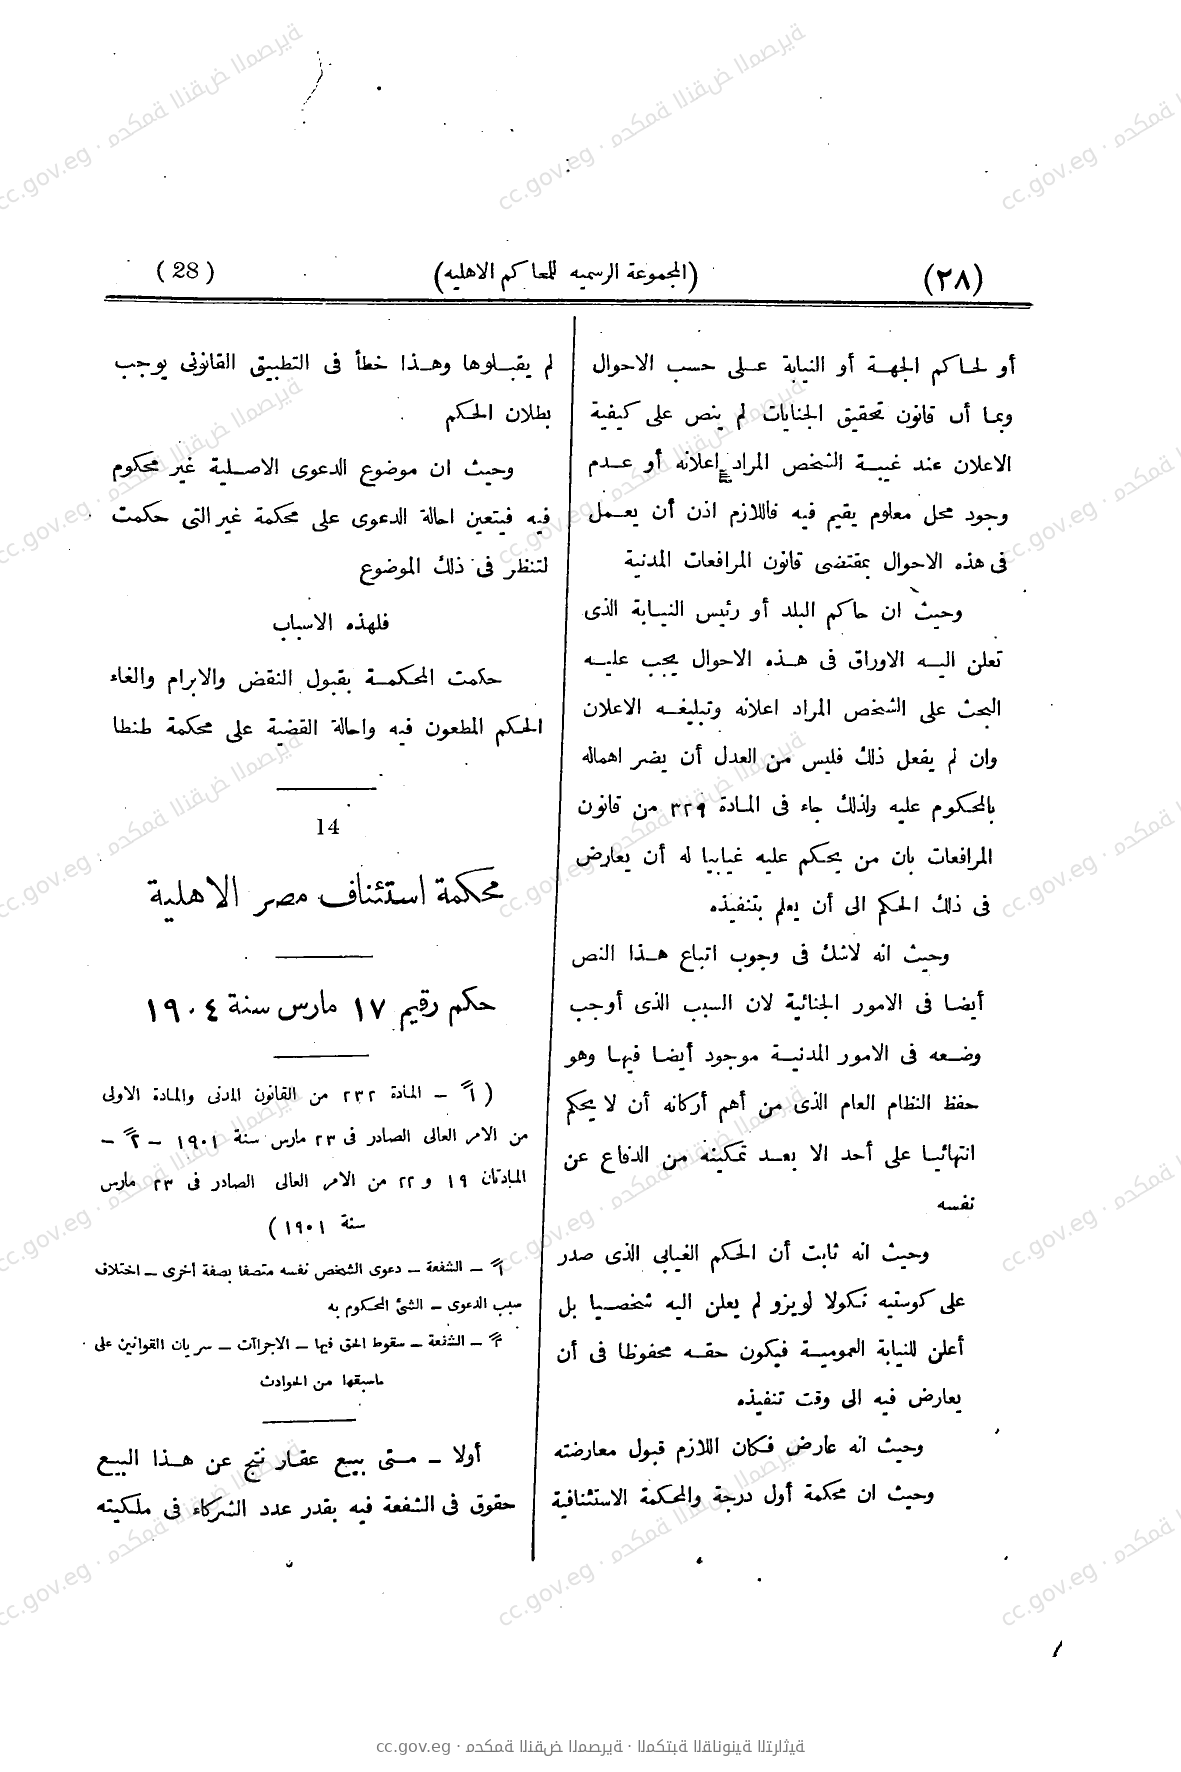 (٢٨)
(المجموعة الرسميه للمحاكم الاهليه)
( 28 )
أو لحاكم الجهة أو النيابة عـلى حسب الاحوال
وبما أن قانون تحقيق الجنايات لم ينص على كيفية
الاعلان عند غيبـة الشخص المراد اعلانه أو عـدم
وجود محل معلوم يقيم فيه فاللازم اذن أن يعـمل
فى هذه الاحوال بمقتضى قانون المرافعات المدنية
وحيث ان حاكم البلد أو رئيس النيـابة الذى
تعلن اليـه الاوراق فى هـذه الاحوال يجب عليـه
البحث على الشخص المراد اعلانه وتبليغـه الاعلان
وان لم يفعل ذلك فليس من العدل أن يضر اهماله
بالمحكوم عليه ولذلك جاء فى المـادة ٣٢٩ من قانون
المرافعات بان من يحكم عليه غيابيا له أن يعارض
فى ذلك الحكم الى أن يعلم بتنفيذه
وحيث انه لاشك فى وجوب اتباع هـذا النص
أيضـا فى الامور الجنائية لان السبب الذى أوجب
وضـعه فى الامور المدنيـة موجود أيضـا فيهـا وهو
حفظ النظام العام الذى من أهم أركانه أن لا يحكم
انتهائيـا على أحد الا بعـد تمكينه من الدفاع عن
نفسه
وحيث انه ثابت أن الحكم الغيابى الذى صدر
على كوستيه نكولا لويزو لم يعلن اليه شخصـيا بل
أعلن للنيابة العموميـة فيكون حقـه محفوظا فى أن
يعارض فيه الى وقت تنفيذه
وحيث انه عارض فكان اللازم قبول معارضته
وحيث ان محكمة أول درجة والمحكمة الاستئنافية
لم يقبـلوها وهـذا خطأ فى التطبيق القانونى يوجب
بطلان الحكم
وحيث ان موضوع الدعوى الاصـلية غير محكوم
فيه فيتعين احالة الدعوى على محكمة غير التى حكمت
لتنظر فى ذلك الموضوع
فلهذه الاسباب
حكمت المحكمـة بقبول النقض والابرام والغاء
الحكم المطعون فيه واحالة القضية على محكمة طنطا
14
محكمة استئناف مصر الاهلية
حكم رقيم ١٧ مارس سنة ١٩٠٤
( ١ً – المادة ٢٣٢ من القانون المدنى والمادة الاولى
من الامر العالى الصادر فى ٢٣ مارس سنة ١٩٠١ – ٢ً –
المادتان ١٩ و ٢٢ من الامر العالى الصادر فى ٢٣ مارس
سنة ١٩٠١ )
١ً – الشفعة – دعوى الشخص نفسه متصفا بصفة أخرى – اختلاف
سبب الدعوى – الشئ المحكوم به
٢ً – الشفعة – سقوط الحق فيها – الاجراآت – سريان القوانين على
ماسبقها من الحوادث
أولا – مـتى بيـع عقـار نتج عن هـذا البيع
حقوق فى الشفعة فيه بقدر عدد الشركاء فى ملكيته
cc.gov.eg · محكمة النقض المصرية · المكتبة القانونية التراثية